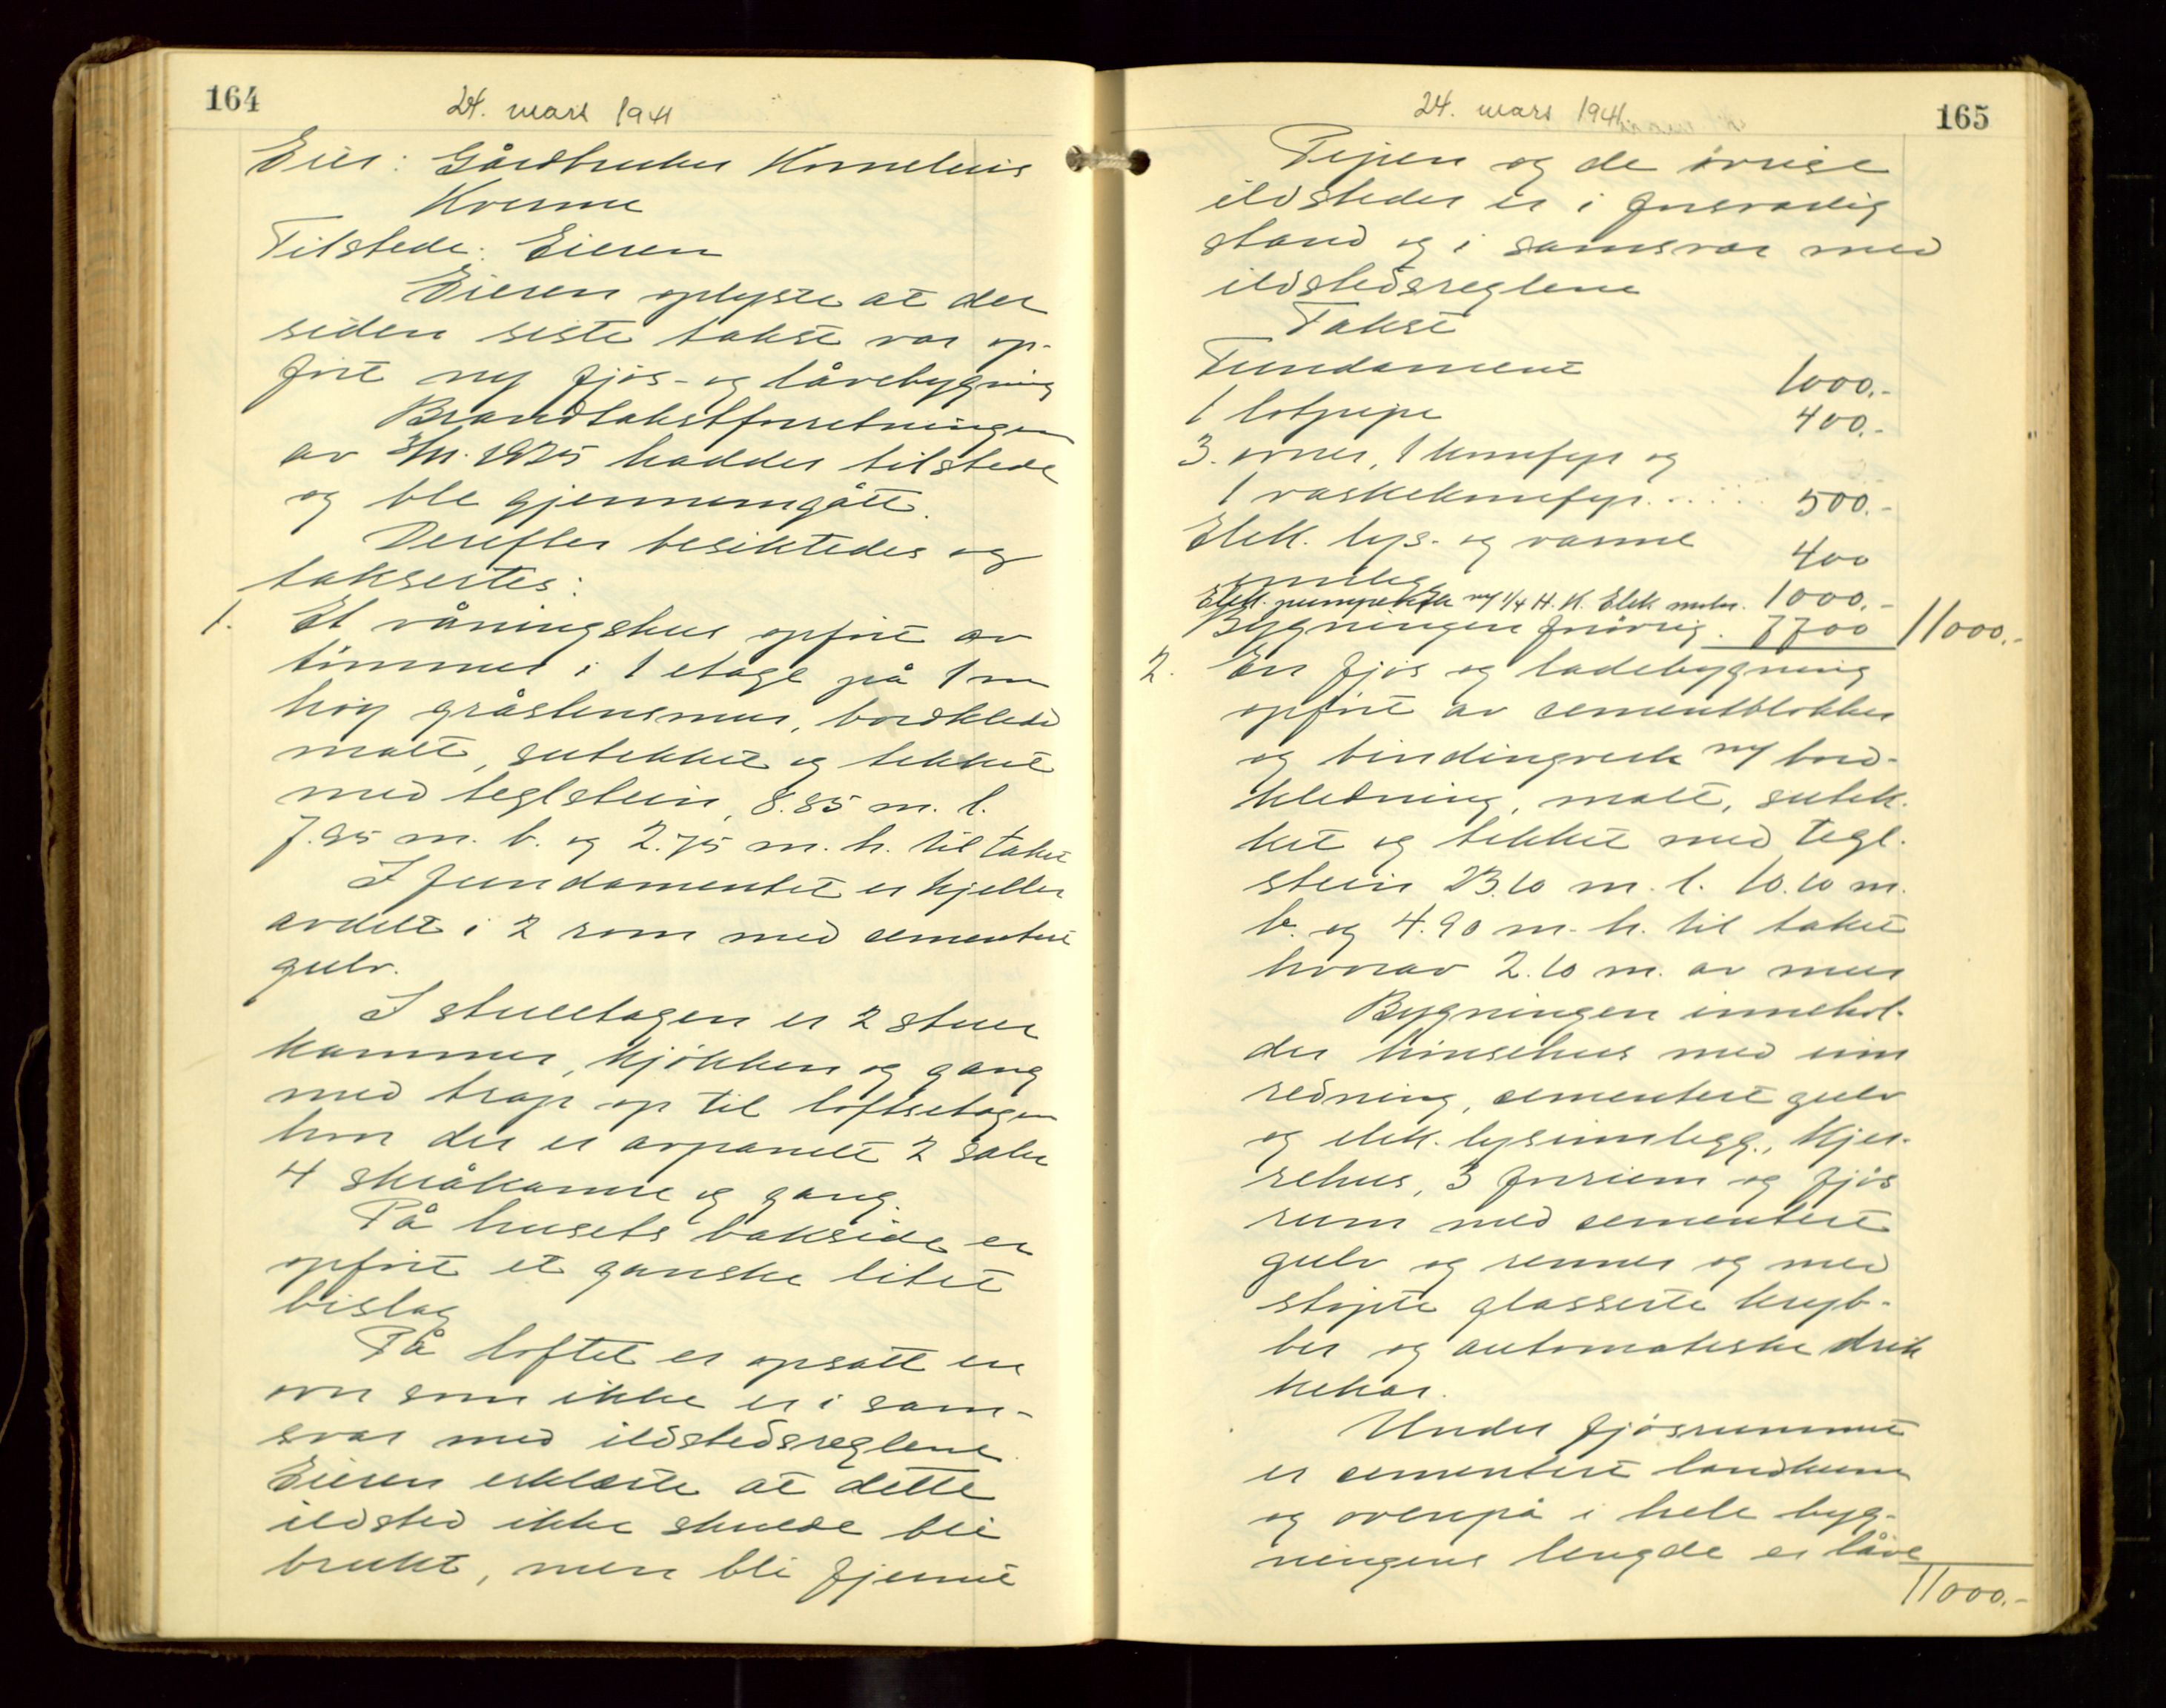 164
24. mars 1941
Eier: Gårdbruker Kornelius
Kverme
Tilstede: Eieren
Eieren oplyste at der
siden siste takst var op-
ført ny fjøs- og låvebygning
Brandtakstforretningen
av 3/11. 1925 haddes tilstede
og ble gjennemgått.
Derefter besiktedes og
taksertes:
1. Et våningshus opført av
tømmer i 1 etage på 1 m
høy gråstensmur, bordkledd
malt, sutekket og tekket
med teglstein, 8.85 m. l.
7.95 m. b. og 2.75 m. h. til taket
I fundamentet er kjeller
avdelt i 2 rom med cementert
gulv.
I stueetagen er 2 stuer
kammer, kjøkken og gang
med trap op til loftsetagen
hvor der er avpanelt 2 saler
4 skråkamre og gang.
På husets bakside er
opført et ganske litet
bislag
På loftet er opsatt en
ovn som ikke er i sam-
svar med ildstedsreglene
Eieren erklærte at dette
ildsted ikke skulde bli
brukt, men bli fjernet
165
24. mars 1941
Pipen og de øvrige
ildsteder er i forsvarlig
stand og i samsvar med
ildstedsreglene
Takst
Fundament 1000.-
1 løtpipe 400.-
3. ovner, 1 komfyr og
1 vaskekomfyr..... 500.-
Elek. lys- og varme 400
Elek. pumpe og 1/4 H. K. Elek motor. 1000.-
Bygningen forøvrig. 7700 11000.-
2. En fjøs og ladebygning
opført av cementblokker
og bindingverk og bord-
kledning, malt, sutek-
ket og tekket med tegl-
stein 23.10 m. l. 10.10 m.
b. og 4.90 m. h. til taket
hvorav 2.10 m. av mur
Bygningen innehol-
der hønsehus med inn
redning, cementert gulv
og elek. lysinnlegg., kjør-
rehus, 3 forrum og fjøs
rum med cementert
gulv og renner og med
støpte glasserte kryb-
ber og automatiske drik
kekar.
Under fjøsrummet
er cementert landkum
og ovenpå i hele byg-
ningens lengde er låve
11000.-